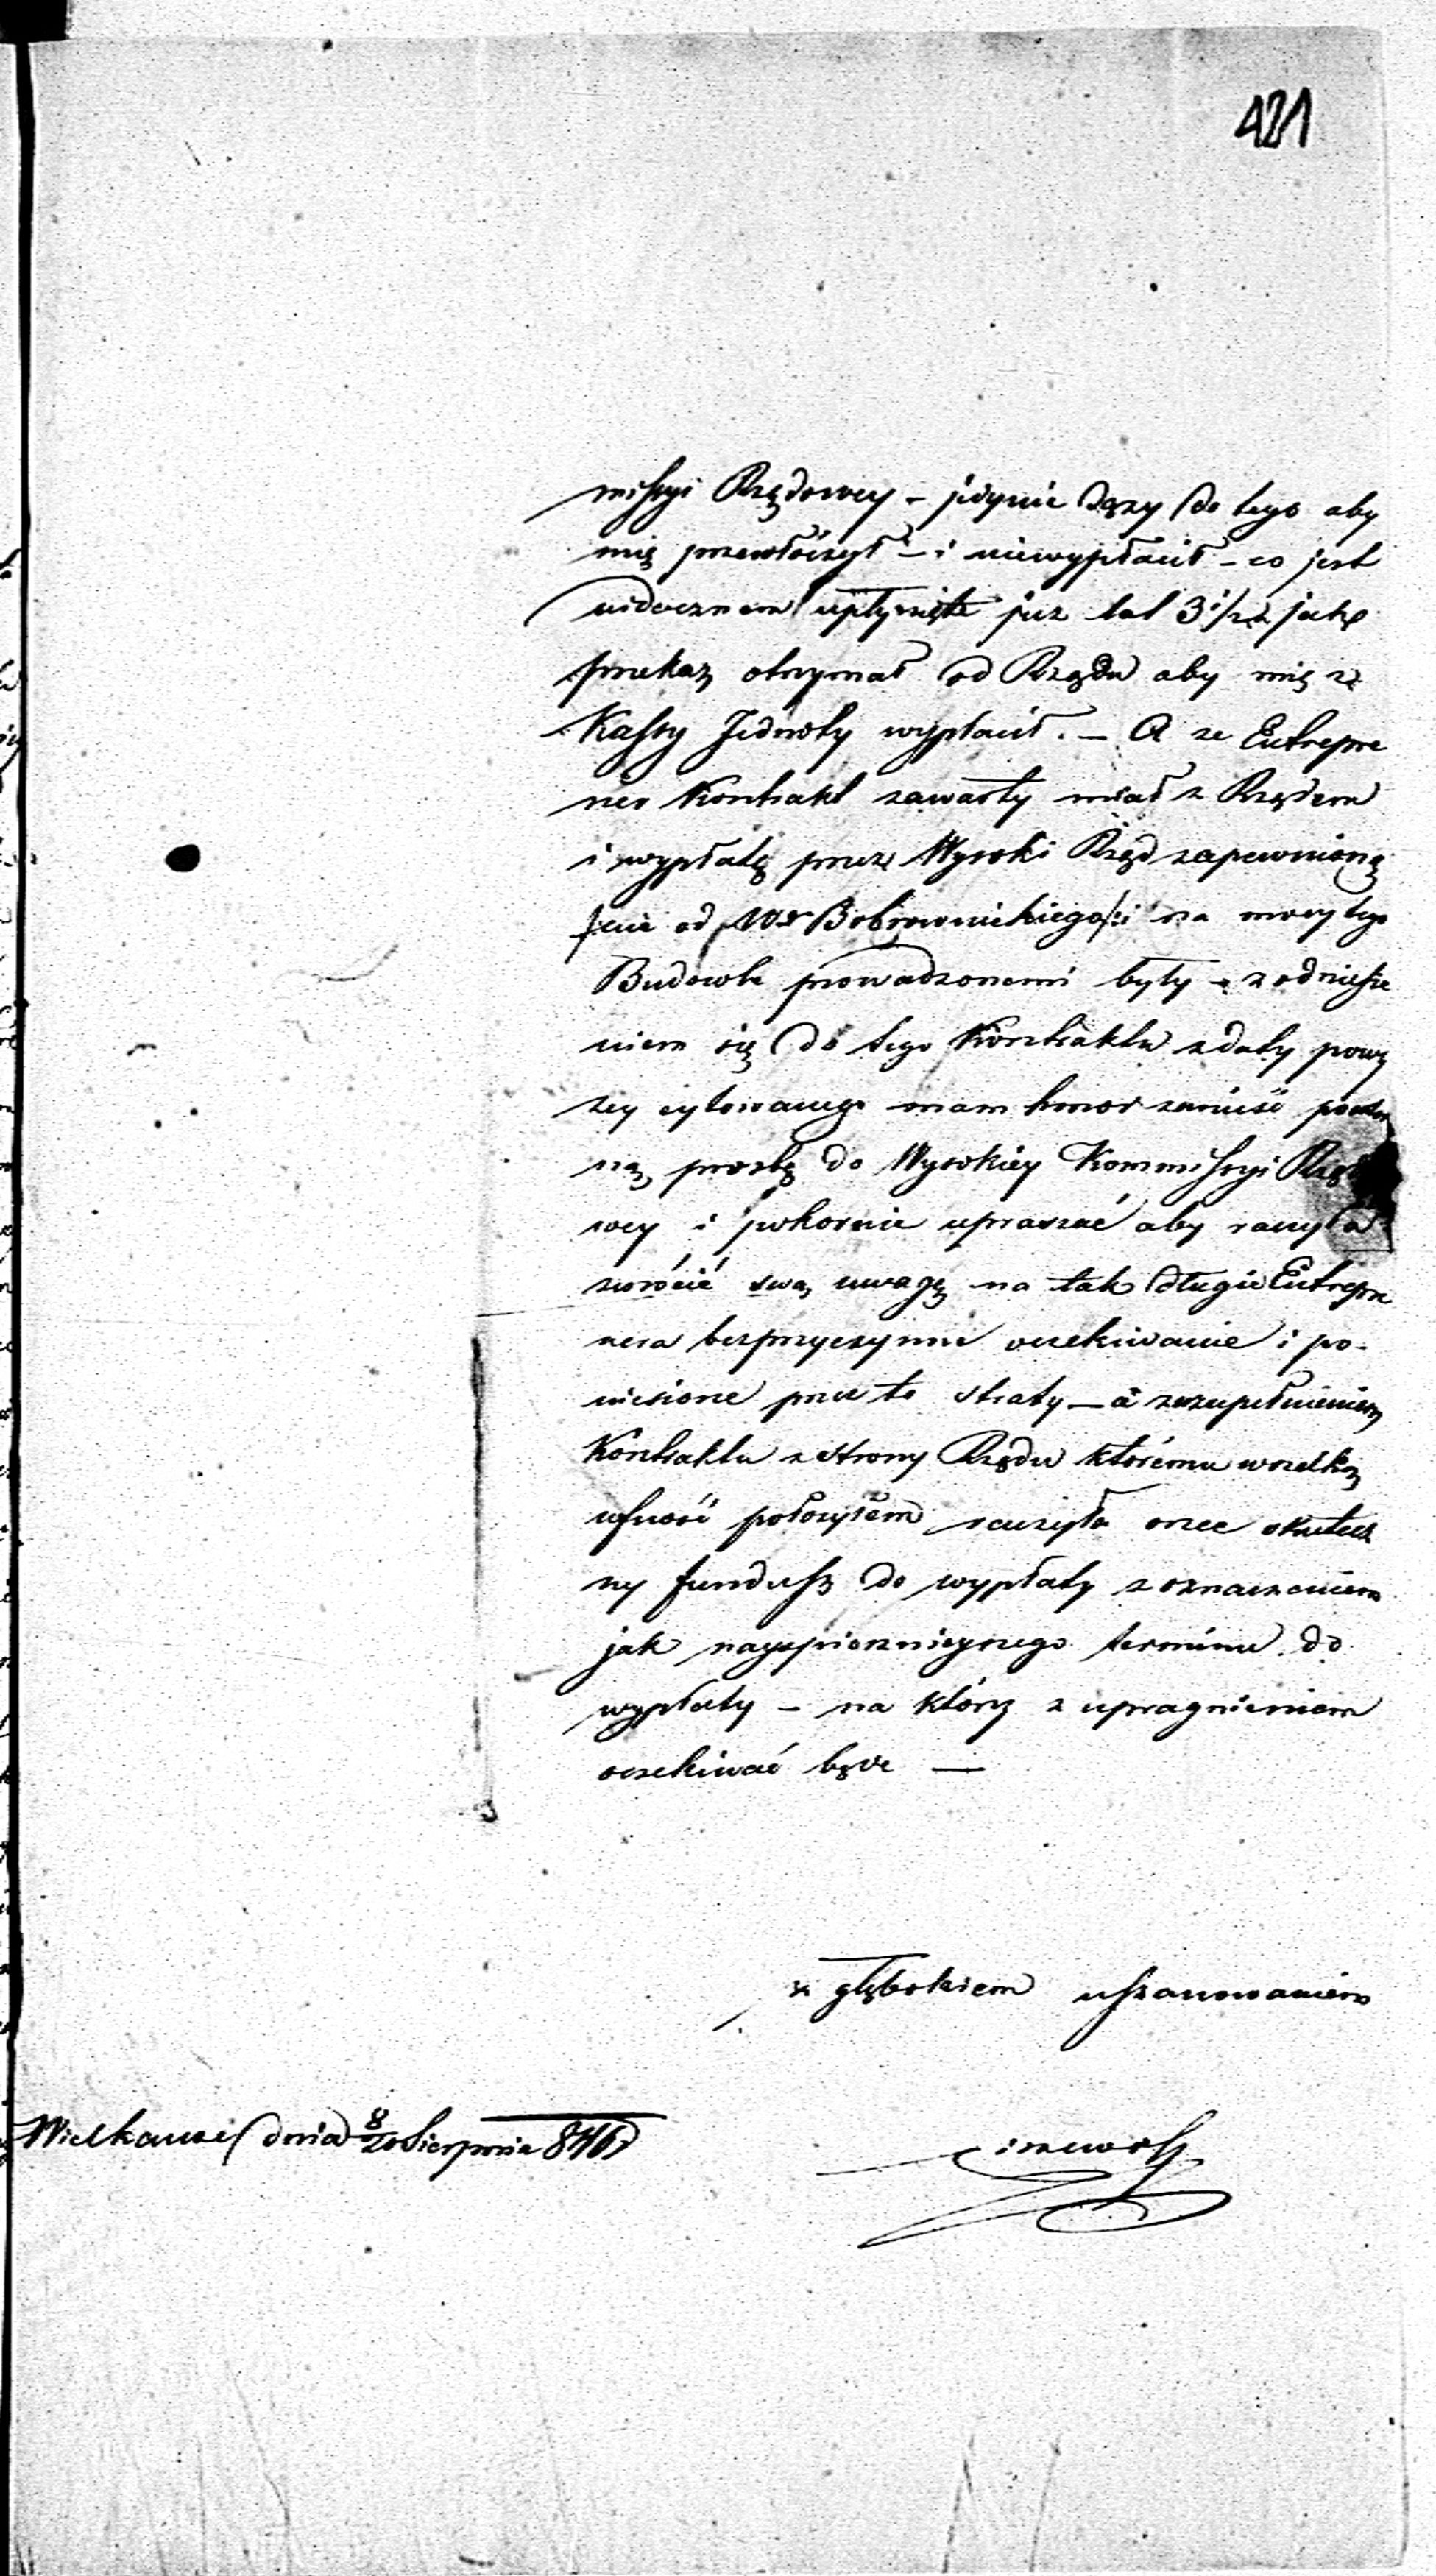 421
missyi Rządowey – jedynie dąży do tego aby
mię przewłóczył – i niewypłacił – co jest
widocznem upłynęło juz lat 3 1/2 jak
przekaz otrzymał od Rządu aby mię z
Kassy Jednoty wypłacił. – A ze Entrepre
ner Kontrakt zawarty miał z Rządem
i wypłatę przez Wysoki Rząd zapewnioną
/:nie od Wo Bobrownickiego:/ i na mocy tego
Budowle prowadzonemi były – z odniesie
niem się do tego Kontraktu z daty powy
zey cytowanego mam honor zanieść
ną prozbę do Wysokiey Kommissyi
wey i pokornie upraszać aby raczyła
zwrócić swą uwagę na tak długie Entrepre
nera bezprzyczynne oczekiwanie i po-
niesione przez to straty – a zuzupełnieniem
Kontraktu z strony Rządu któremu wszelką
ufność położyłem raczyła orzec skutecz
ny fundusz do wypłaty z oznaczeniem
jak nayspieszniejszego terminu do
wypłaty – na który z upragnieniem
oczekiwać będe —
z głębokiem uszanowaniem
dnia 8/20 Sierpnia 846 r